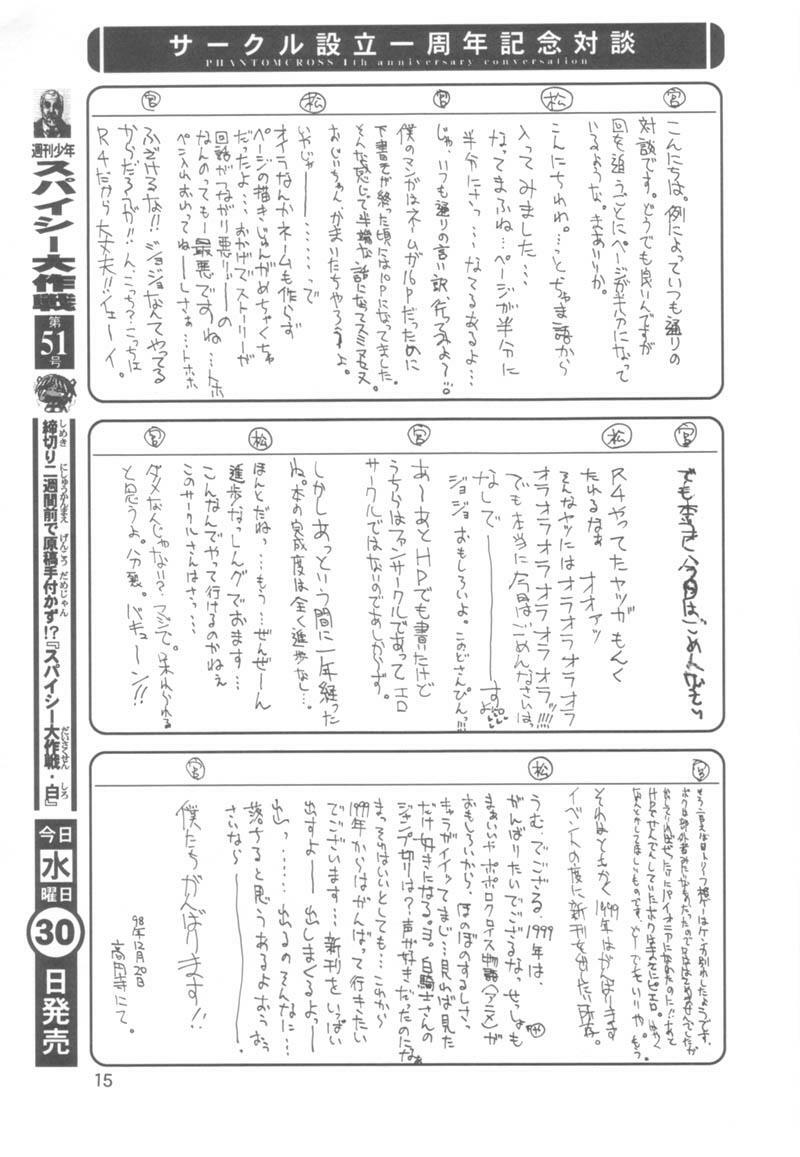 サークル設立一周年記念対談
PHANTOMCROSS 1th anniversary conversation
宮
こんにちは。例によっていつも通りの
対談です。どうでも良いんですが
回を追うごとにページが半分になって
いるような。きありか。
松
こんにちわわ。…とちゃま語から
入ってみました…
なってまふね…ページが半分に
半分にさっ…なてるあるよ…
宮
じゃ、いつも通りの言い訳、行ってみよ〜!!。
僕のマンガはネームが16Pだったために
下書きが終った頃には10Pになってました。
そんな感じで半端な話になってスミマセヌ
おじいちゃん、かまいたちやろうよ。
松
いやじゃ――………で
オイラなんかネームも作らず
ページの描きじゅんがめちゃくちゃ
だったよ…おかげでストーリーが
回話がつながり悪りぃ――の
なんのっても――最悪ですね…トホ
ペン入れおわってねーしさぁ…トホホ
宮
ふざけるな!!ジョジョなんてやってる
からだろが!!んこっち?こっちは
R4だから大丈夫!!イェーイ。
宮
でも本当に今回はごめんなさい
松
R4やってたヤツがもんく
たれるなぁ オオァッ
そんなヤツにはオラオラオラオラ
オラオラオラオラオラオラッ!!!!
でも本当に今回はごめんなさいはっ
なしで――――すよ
ジョジョおもしろいよ。このどさんぴんっ!!!
宮
あ〜あとHPでも書いたけど
うちらはファンサークルであってエロ
サークルではないのであしからず。
しかしあっという間に一年経った
ね。本の完成度は全く進歩なし…。
松
ほんとだねっ…もう…ぜんぜーん
進歩なっしんグでおます…
こんなんでやって行けるのかねぇ
このサークルさんはさっ…
宮
ダメなんじゃない?マジで。呆れられる
と思うよ。分裂。バキューン!!
宮
それはともかく1999年はがんばります
イベントの度に新刊を出したい所存。
松
うむ。でござる。1999年は、
がんばりたいでござるなっせっしゃも
まぁいいやポポロクロイス物語〈アニメ〉が
おもしろいから、ほのぼのするしさっ
キャラがイイッてまじ…見れば見た
だけ好きになる。ヨ。白騎士さんの
ジャンプ切りは?声が好きだったのになぁ
まっそれはいいとしても…これから
1999年からはがんばって行きたい
でございます…新刊をいっぱい
出すよ――出しまくるよっ――
出っ……出るのそんなに…
落ちると思うあるよおうおぅ
さいなら――――
宮
僕たちがんばります!!
98年12月20日
高円寺にて。
週刊少年
スパイシー大作戦
第51号
締切り二週間前で原稿手付かず!?『スパイシー大作戦・白』
しめき にしゅうかんまえ げんこう だめじゃん だいさくせん しろ
今日水曜日30日発売
15